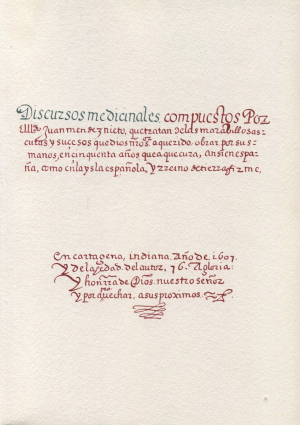 Discursos medicinales, compuestos Por
el liᵈᵒ Juan mendez nieto, que tratan de las marabillosas
curas, y sucesos que dios nr̃o s.ʳ a querido obrar por sus
manos, en cinquenta años que a que cura, ansi en espa-
ña, como en la ysla española, y rreino de tierra fir me.
En cartagena, indiana. Año de .1607.
Y de la hedad. del autor, 76. A gloria:
Y honrra de Dios. nuestro señor
y por quechar, a sus proximos.